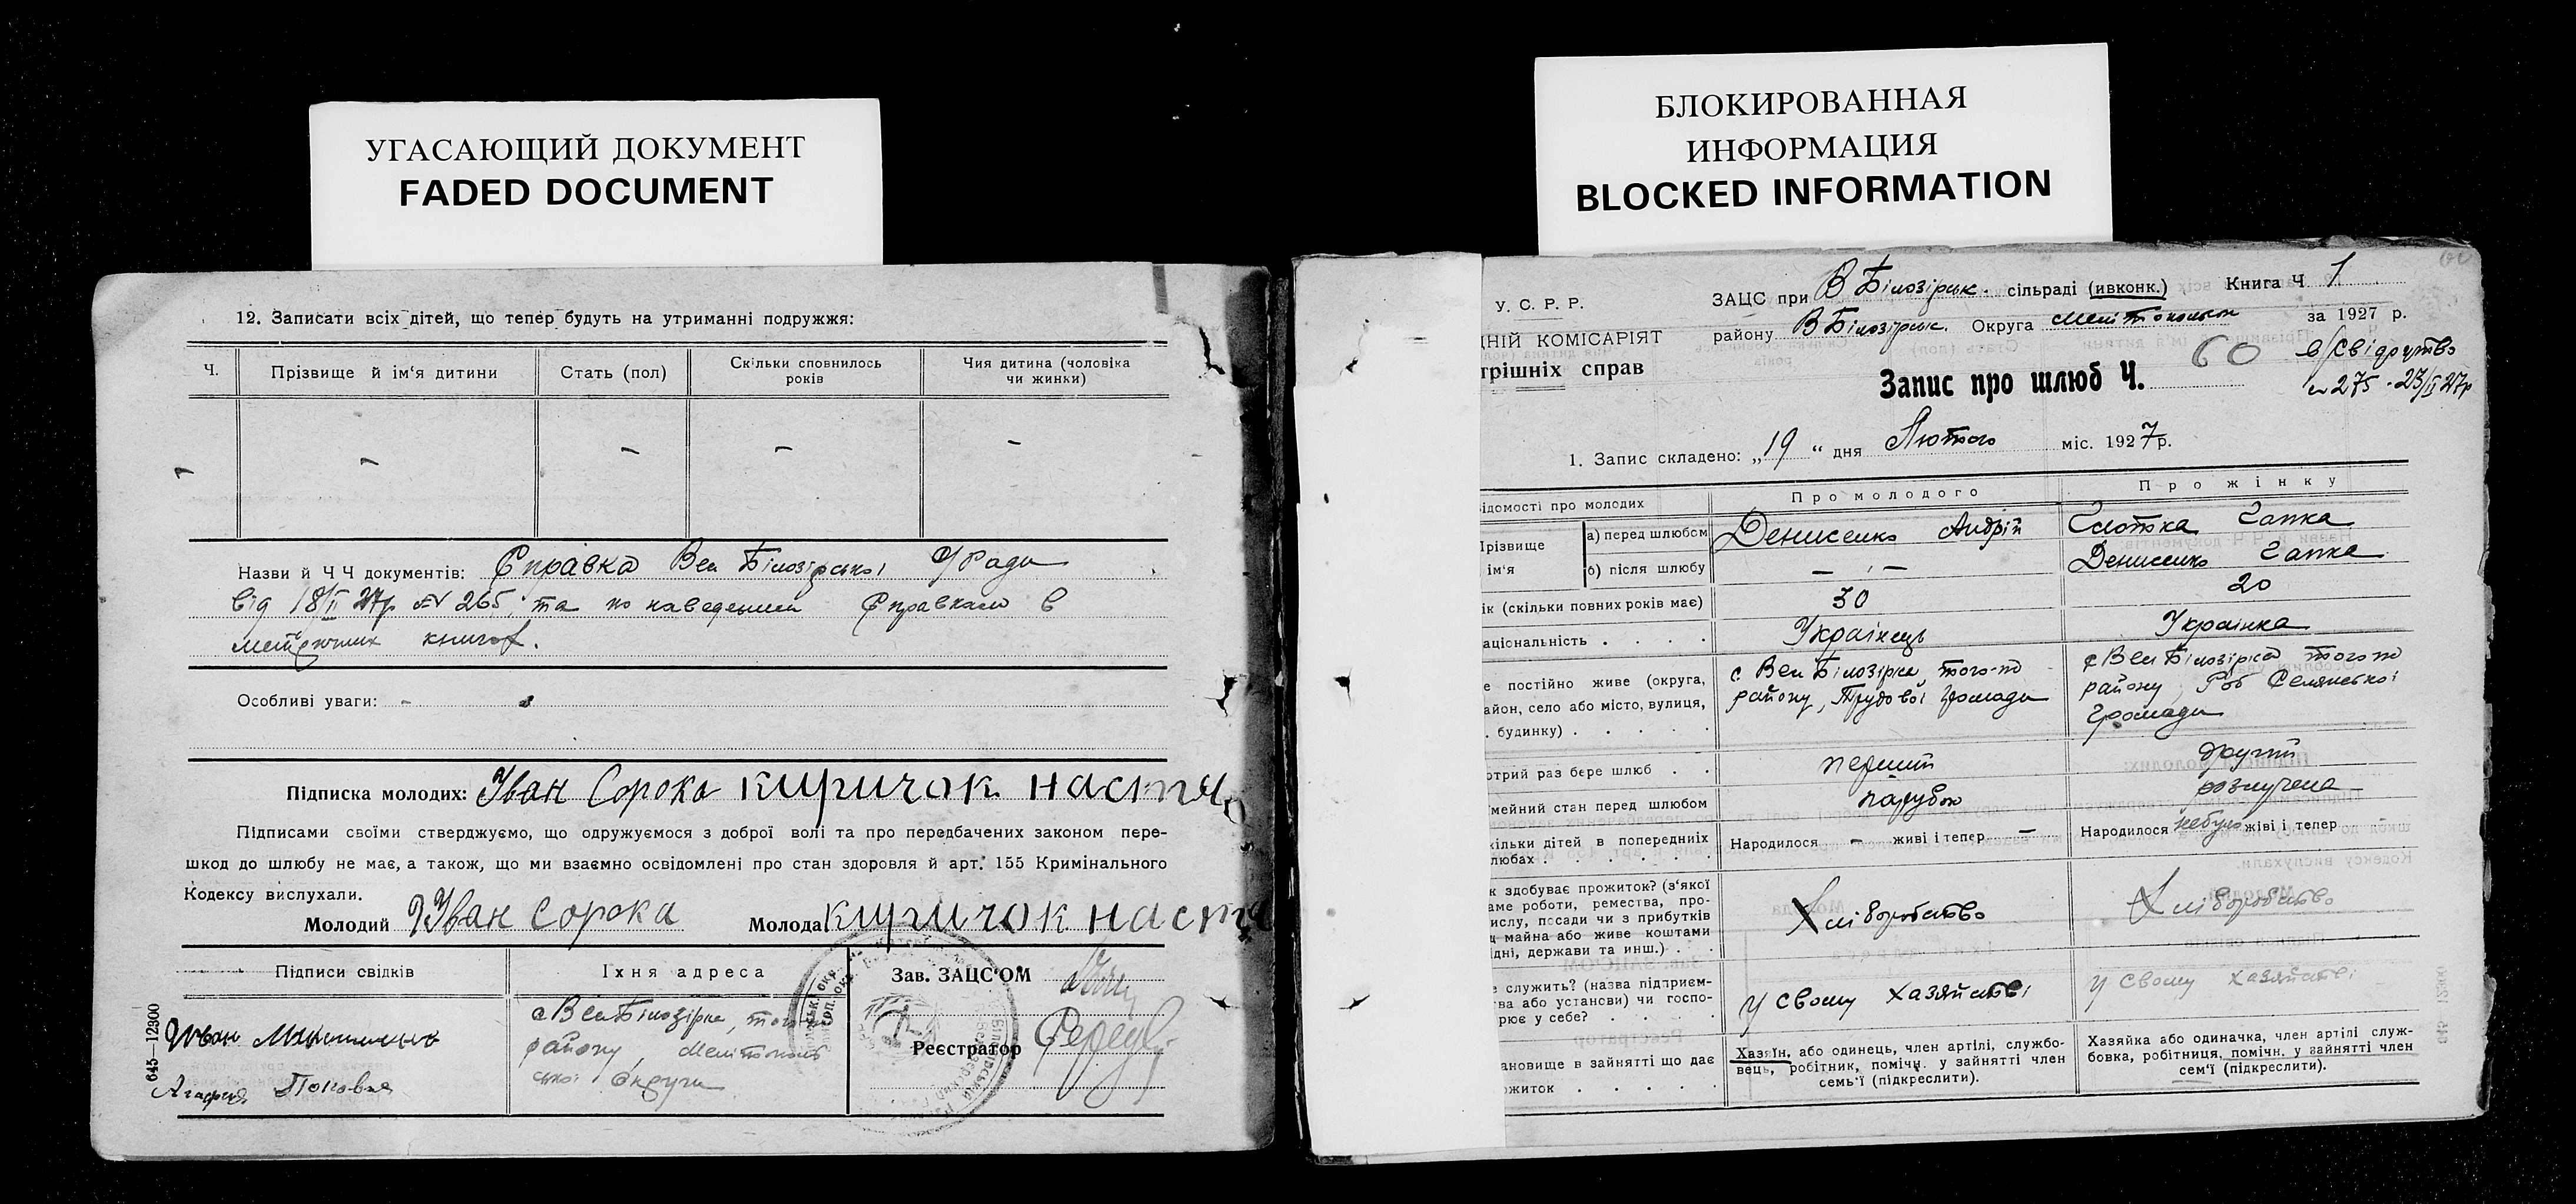 УГАСАЮЩИЙ ДОКУМЕНТ
FADED DOCUMENT
12. Записати всіх дітей, що тепер будуть на утриманні подружжя:
Ч. Прізвище й ім'я дитини Стать (пол) Скільки сповнилось років Чия дитина (чоловіка чи жинки)
- - - - -
Назви й Ч Ч документів: Справка Вел Білозірської Уради
від 18/II 27р № 265, та по наведеним Справкам в
метричних книгах.
Особливі уваги: -
Підписка молодих: Іван Сорока киричок настя
Підписами своїми стверджуємо, що одружуємося з доброї волі та про передбачених законом пере-
шкод до шлюбу не має, а також, що ми взаємно освідомлені про стан здоровля й арт. 155 Кримінального
Кодексу вислухали.
Молодий Іван Сорока Молода киричок настя
Підписи свідків Їхня адреса Зав. ЗАЦС'ОМ
Иван
Агафия Поповия
с Вел Білозірка, того-ж
району, Мелітополь
ської Округи
Реєстратор
645—12300
БЛОКИРОВАННАЯ
ИНФОРМАЦИЯ
BLOCKED INFORMATION
У. С. Р. Р.
ДНІЙ КОМІСАРІЯТ
трішніх справ
ЗАЦС при В Білозірськ. сільраді (ивконк.) Книга Ч 1
району В Білозірськ. Округа Мелітопольск за 1927 р.
Запис про шлюб Ч. 60
в/свідоцтво
№ 275 - 23/II 27р
1. Запис складено: „19“ дня Лютого міс. 1927 р.
ідомості про молодих Про молодого Про жінку
Прізвище ім'я
а) перед шлюбом Денисенко Андрій Гапка
б) після шлюбу — „ — Денисенко Гапка
ік (скільки повних років має) 30 20
аціональність Українець Українка
е постійно живе (округа,
айон, село або місто, вулиця,
. будинку)
с Вел Білозірка, того-ж
району, Трудової громади
с Вел Білозірка того ж
району, Роб Селянської
громади
отрий раз бере шлюб перший другий
мейний стан перед шлюбом парубок розлучена
кільки дітей в попередніх
любах
Народилося - живі і тепер —
Народилося небуло жіві і тепер -
к здобуває прожиток? (з'якої
аме роботи, ремества, про-
ислу, посади чи з прибутків
ц майна або живе коштами
ідні, держави та инш.)
Хліборобство Хліборобство
е служить? (назва підприєм-
ва або установи) чи госпо-
рює у себе?
у своему хазяйстві у своему хазяйстві
ановище в зайнятті що дає
ожиток
Хазяїн, або одинець, член артілі, службо-
вець, робітник, помічн. у зайнятті член
семь'ї (підкреслити).
Хазяйка або одиначка, член артілі служ-
бовка, робітниця, помічн. у зайнятті член
сем'ї (підкреслити).